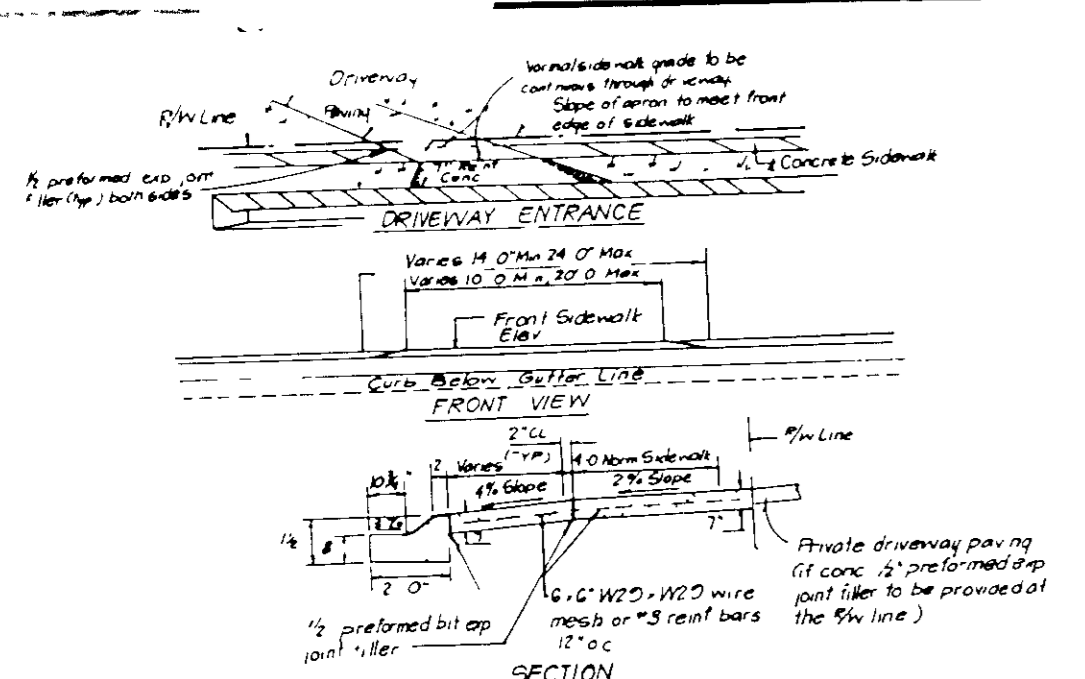 Driveway
Paving
R/W Line
Normal sidewalk grade to be
continuous through driveway
Slope of apron to meet front
edge of sidewalk
Concrete Sidewalk
½ preformed exp
filler (typ) both sides
7" Reinf
Conc
DRIVEWAY ENTRANCE
Varies 14 0" Min 24 0" Max
Varies 10 0 Min, 20 0 Max
Front Sidewalk
Elev
Curb Below Gutter Line
FRONT VIEW
2" CL
(TYP)
R/W Line
2 Varies
4 0 Norm Sidewalk
4% Slope
2% Slope
11½
8
7"
2 0"
½ preformed bit exp
joint filler
6 x 6" W2.9 x W2.9 wire
mesh or #3 reinf bars
12" o c
Private driveway paving
(if conc ½" preformed exp
joint filler to be provided at
the R/W line)
SECTION